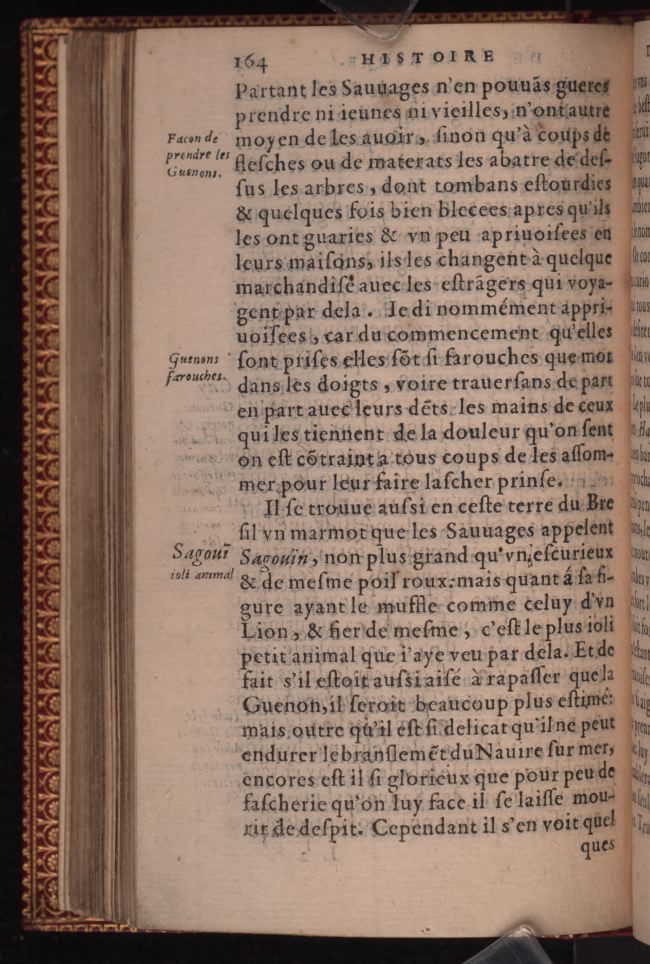 164 HISTOIRE
Partant les Sauuages n'en pouuãs gueres
prendre ni ieunes ni vieilles, n'ont autre
moyen de les auoir, sinon qu'à coups de
flesches ou de materats les abatre de des-
sus les arbres, dont tombans estourdies
& quelques fois bien blecees apres qu'ils
les ont guaries & vn peu apriuoisees en
leurs maisons, ils les changent à quelque
marchandise auec les estrãgers qui voya-
gent par dela. Ie di nommément appri-
uoisees, car du commencement qu'elles
sont prises elles sõt si farouches que mor
dans les doigts, voire trauersans de part
en part auec leurs dẽts les mains de ceux
qui les tiennent de la douleur qu'on sent
on est cõtraint a tous coups de les assom-
mer pour leur faire lascher prinse.
Il se trouue aussi en ceste terre du Bre
sil vn marmot que les Sauuages appelent
Sagouin, non plus grand qu'vn escurieux
& de mesme poil roux: mais quant á sa fi-
gure ayant le muffle comme celuy d'vn
Lion, & fier de mesme, c'est le plus ioli
petit animal que i'aye veu par dela. Et de
fait s'il estoit aussi aisé à rapasser que la
Guenon, il seroit beaucoup plus estimé:
mais outre qu'il est si delicat qu'il ne peut
endurer le branslemẽt du Nauire sur mer,
encores est il si glorieux que pour peu de
fascherie qu'on luy face il se laisse mou-
rir de despit. Cependant il s'en voit quel
ques
Facon de
prendre les
Guenons.
Guenons
farouches.
Sagouĩ
ioli animal